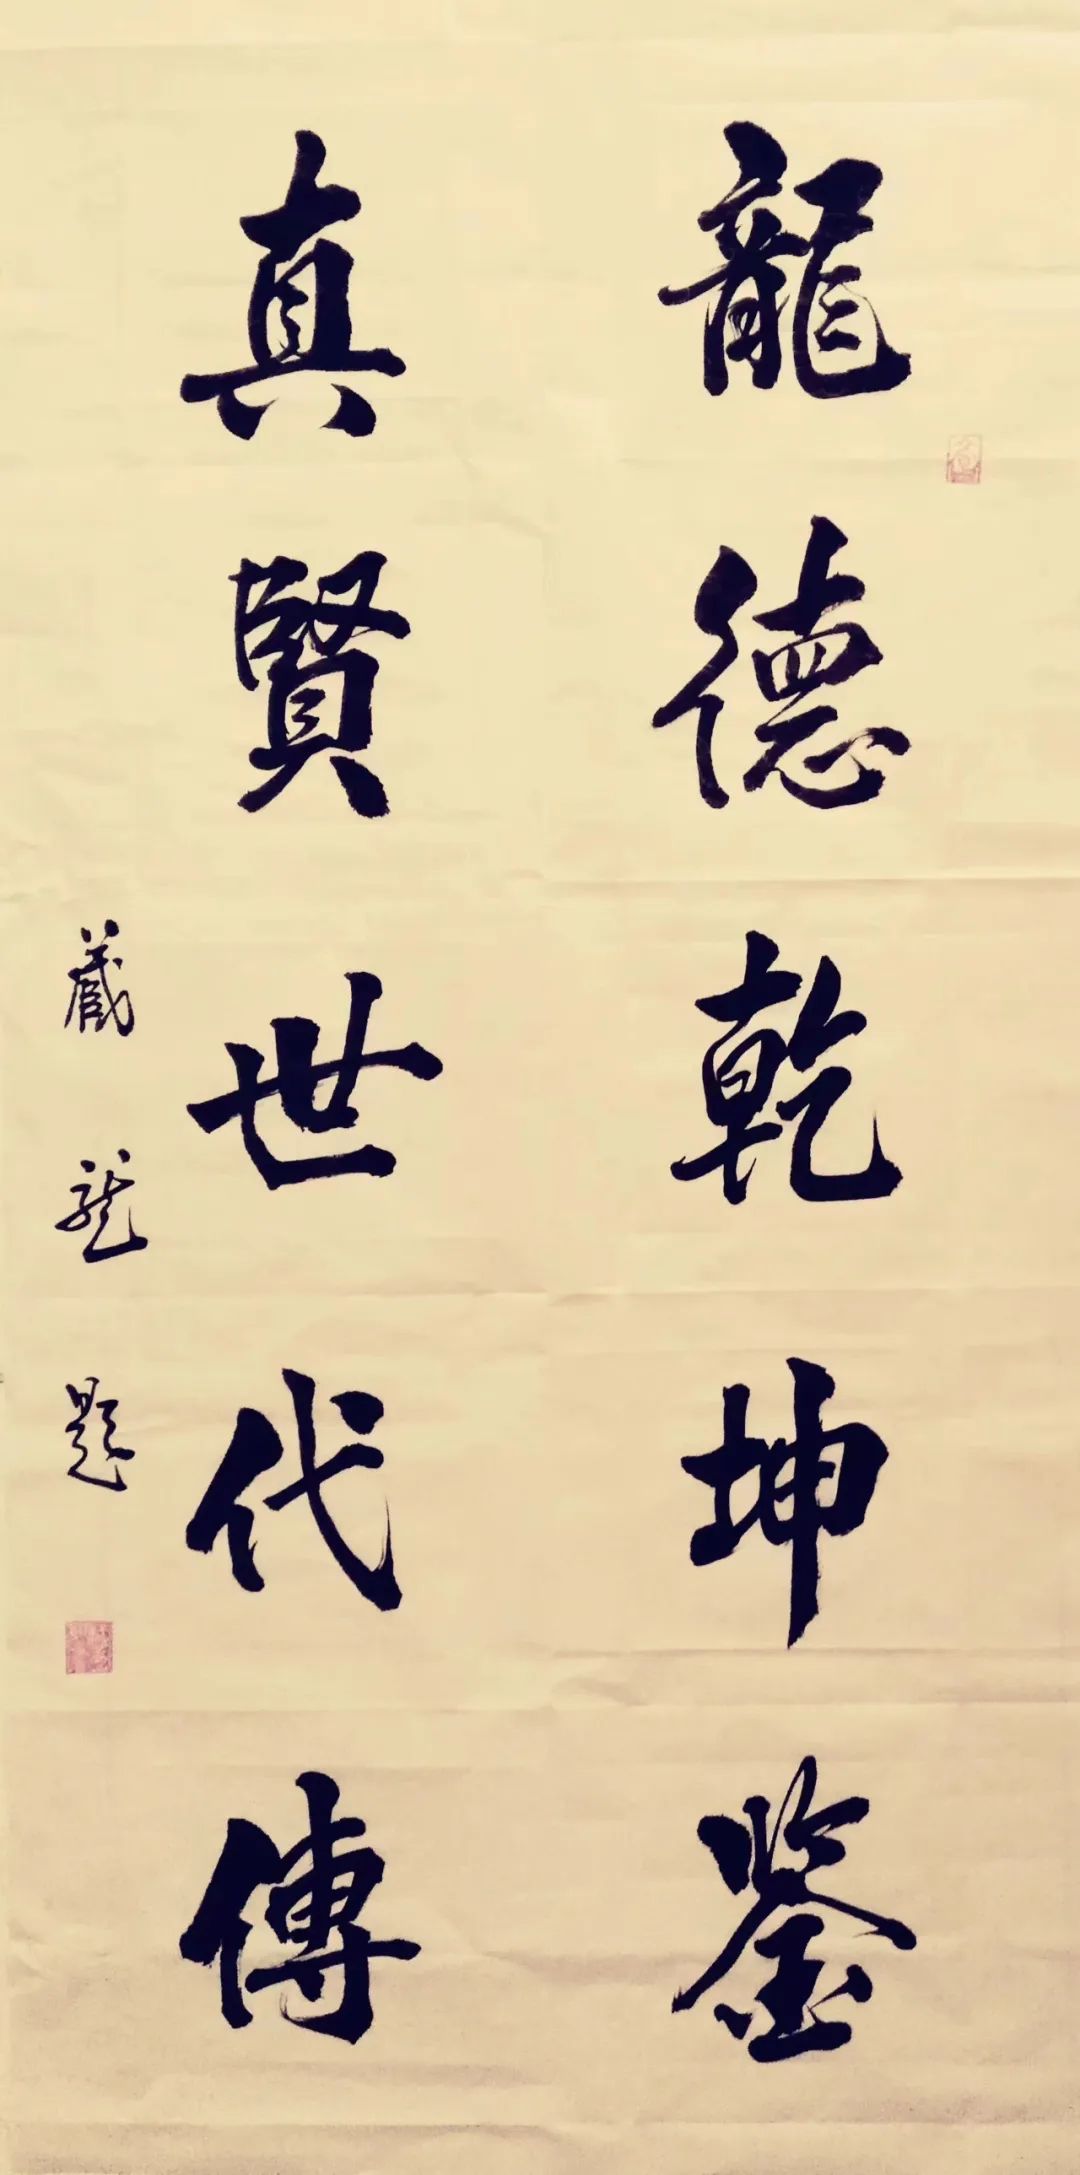 龍德乾坤鉴
真賢世代傳
藏龙题